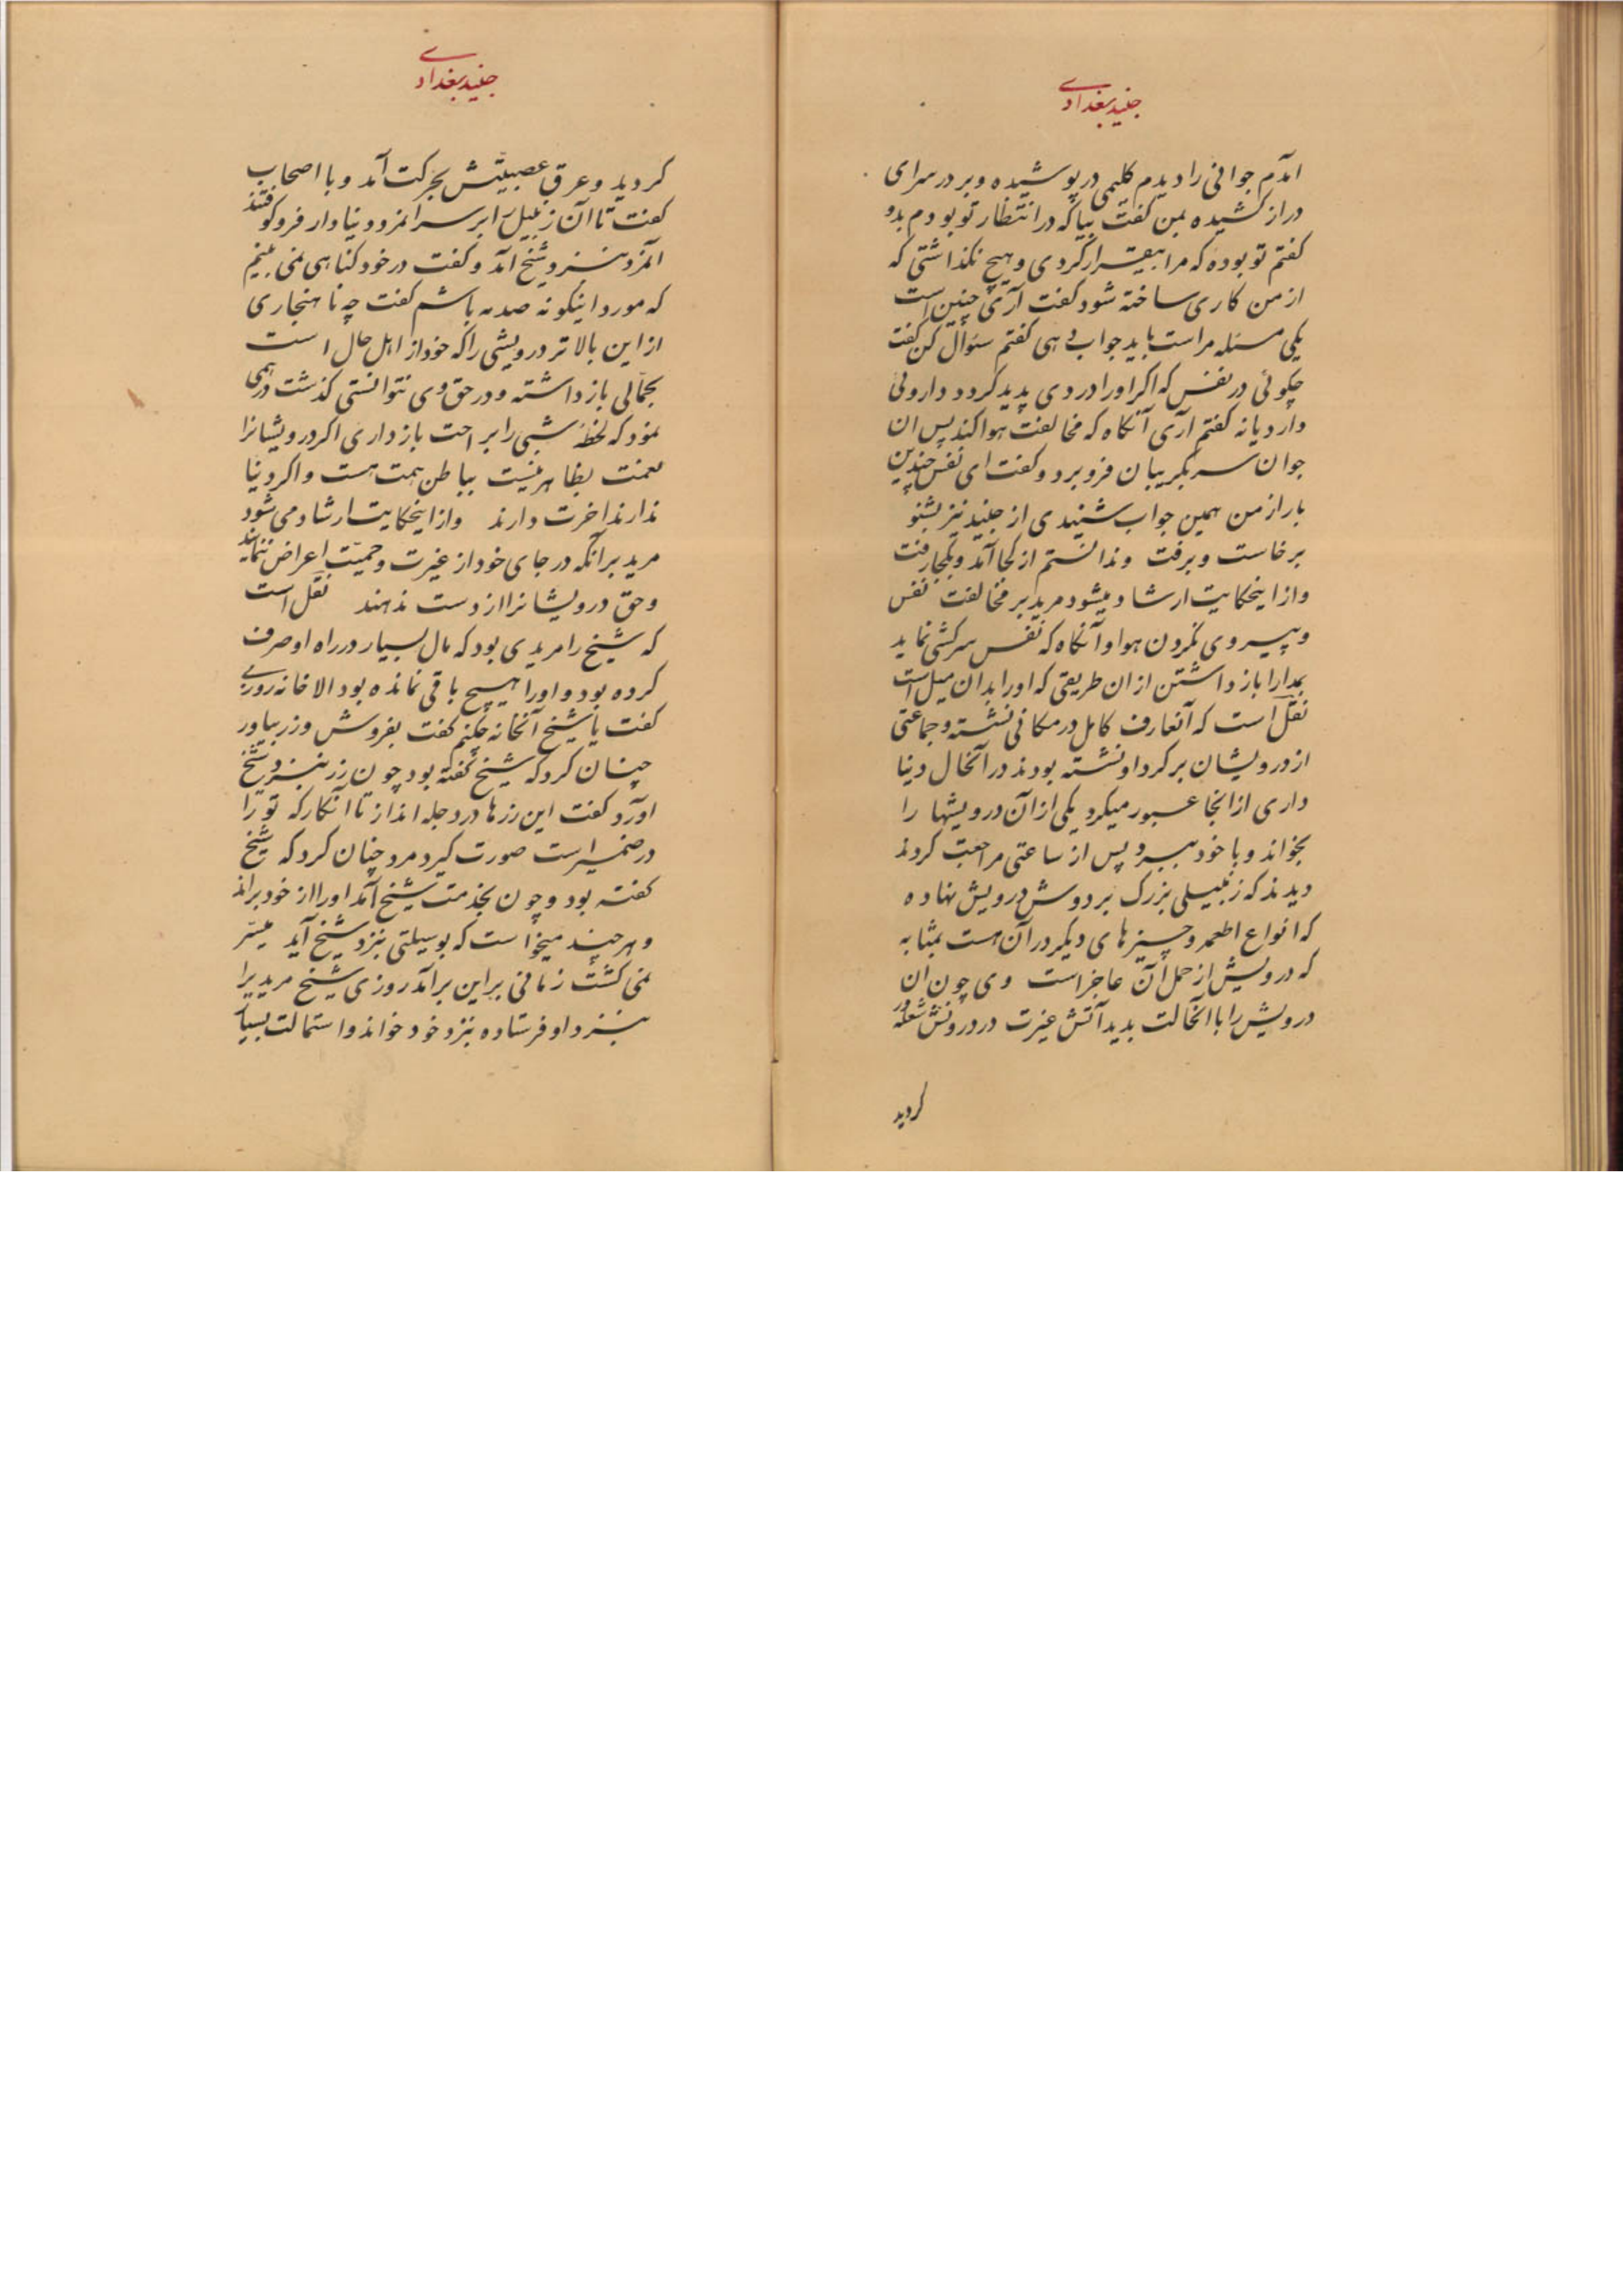 جنید بغدادی
امدم جوانی را دیدم کلیمی در پوشیده و بر در سرای
دراز کشیده بمن کفت بیا که در انتظار تو بودم بدو
کفتم تو بوده که مرا بیقرار کردی و هیچ نکذاشتی که
از من کاری ساخته شود کفت آری چنین است
یکی مسئله مراست باید جواب دهی کفتم سئوال کن کفت
چکوئی در نفس که اکر او را دردی پدید کردد داروئی
دارد یا نه کفتم آری آنکاه که مخالفت هوا کند پس ان
جوان سر بکریبان فرو برد و کفت ای نفس چندین
بار از من همین جواب شنیدی از جنید نیز بشنو
برخاست و برفت و ندانستم از کجا آمد و بکجا رفت
و از اینحکایت ارشاد میشود مرید بر مخالفت نفس
و پیروی نکردن هوا و آنکاه که نفس سرکشی نماید
بمدارا باز داشتن از ان طریقی که او را بدان میل است
نقل است که آنعارف کامل در مکانی نشسته و جماعتی
از درویشان بر کرد او نشسته بودند در آنحال دنیا
داری از انجا عبور میکرد یکی از آن درویشها را
بخواند و با خود ببرد پس از ساعتی مراجعت کردند
دیدند که زنبیلی بزرک بر دوش درویش نهاده
که انواع اطعمه و چیزهای دیکر در آن هست بمثابه
که درویش از حمل آن عاجز است وی چون ان
درویش را با آنحالت بدید آتش غیرت در درونش شعله ور
کردید
جنید بغدادی
کردید و عرق عصبیتش بحرکت آمد و با اصحاب
کفت تا آن زنبیل را بر سر انمرد دنیا دار فرو کوفتند
آنمرد بنزد شیخ آمد و کفت در خود کناهی نمی بینم
که مورد اینکونه صدمه باشم کفت چه ناهنجاری
از این بالاتر درویشی را که خود از اهل حال است
بحمالی باز داشته و در حق وی نتوانستی کذشت درهمی
نمود که لحظه شبی را براحت باز داری اکر درویشانرا
نعمت بظاهر نیست بباطن همت هست و اکر دنیا
ندارند اخرت دارند و از اینحکایت ارشاد می شود
مرید بر آنکه در جای خود از غیرت و حمیت اعراض ننمایند
و حق درویشانرا از دست ندهند نقل است
که شیخ را مریدی بود که مال بسیار در راه او صرف
کرده بود و او را هیچ باقی نمانده بود الا خانه روزی
کفت یا شیخ آنخانه چکنم کفت بفروش و زر بیاور
چنان کرد که شیخ کفته بود چون زر بنزد شیخ
اورد کفت این زرها در دجله انداز تا آنکار که تو را
در ضمیر است صورت کیرد مرد چنان کرد که شیخ
کفته بود و چون بخدمت شیخ آمد او را از خود براند
و هر چند میخواست که بوسیلتی بنزد شیخ آید میسر
نمی کشت زمانی بر این برآمد روزی شیخ مریدیرا
بنزد او فرستاده نزد خود خواند و استمالت بسیار